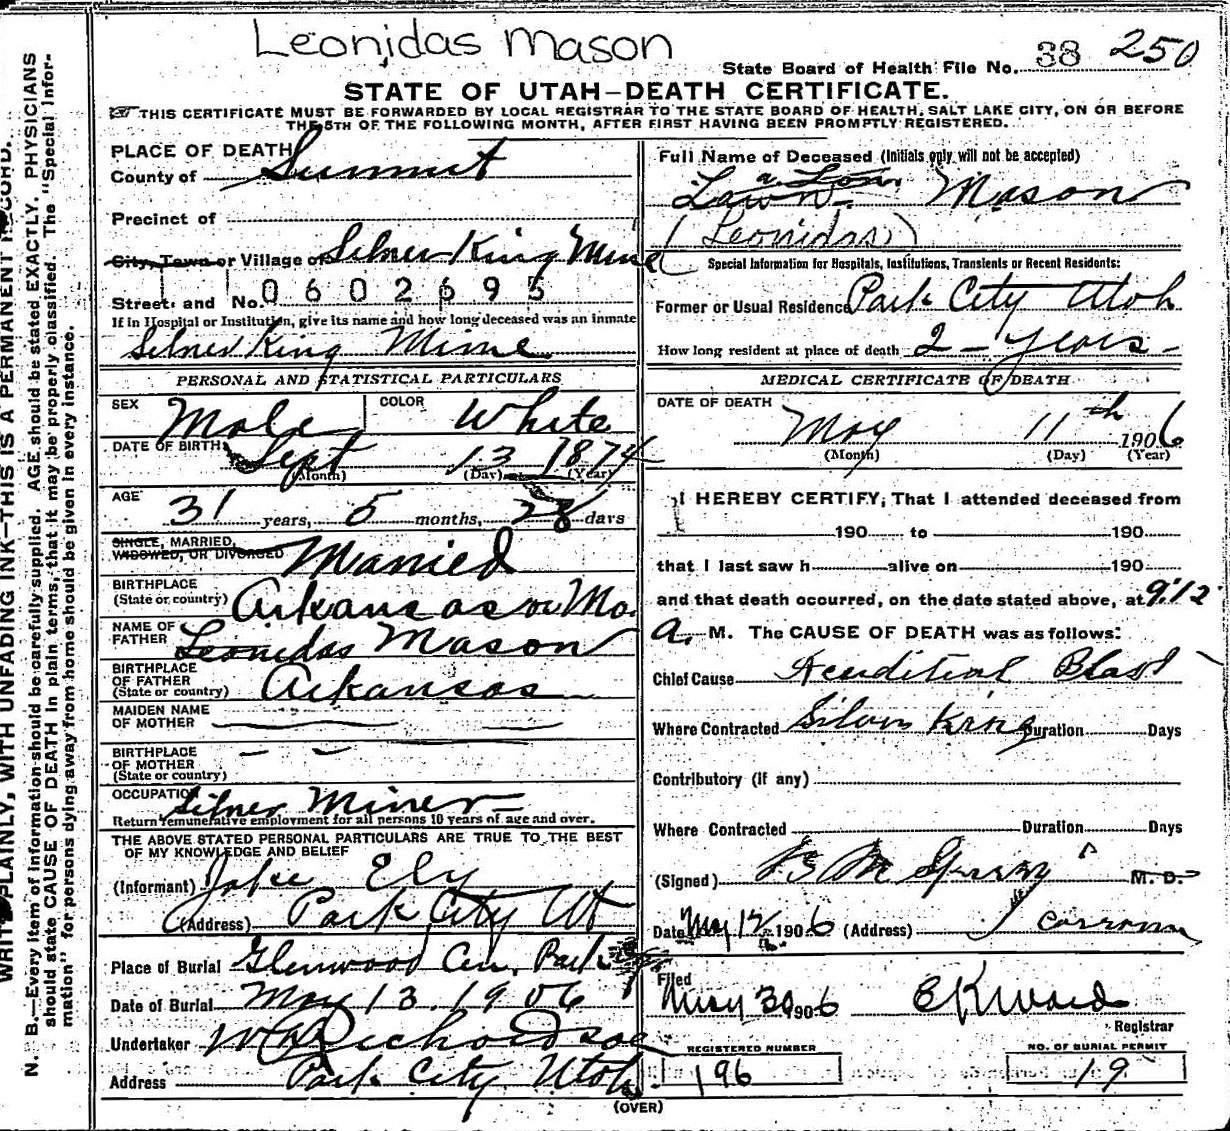 Leonidas Mason
State Board of Health File No. 38 250
STATE OF UTAH—DEATH CERTIFICATE.
THIS CERTIFICATE MUST BE FORWARDED BY LOCAL REGISTRAR TO THE STATE BOARD OF HEALTH, SALT LAKE CITY, ON OR BEFORE
THE 5TH OF THE FOLLOWING MONTH, AFTER FIRST HAVING BEEN PROMPTLY REGISTERED.
WRITE PLAINLY, WITH UNFADING INK—THIS IS A PERMANENT RECORD.
N. B.—Every item of information should be carefully supplied. AGE should be stated EXACTLY. PHYSICIANS
should state CAUSE OF DEATH in plain terms, that it may be properly classified. The "Special Infor-
mation" for persons dying away from home should be given in every instance.
PLACE OF DEATH
County of Summit
Precinct of
City, Town or Village of Silver King Mine
Street and No. 0602695
If in Hospital or Institution, give its name and how long deceased was an inmate
Silver King Mine
PERSONAL AND STATISTICAL PARTICULARS
SEX Male COLOR White
DATE OF BIRTH Sept 13 1874
(Month) (Day) (Year)
AGE 31 years, 5 months, 28 days
SINGLE, MARRIED,
WIDOWED, OR DIVORCED Married
BIRTHPLACE
(State or country) Arkansas or Mo.
NAME OF
FATHER Leonidas Mason
BIRTHPLACE
OF FATHER
(State or country) Arkansas
MAIDEN NAME
OF MOTHER
BIRTHPLACE
OF MOTHER
(State or country)
OCCUPATION Silver Miner
Return remunerative employment for all persons 10 years of age and over.
THE ABOVE STATED PERSONAL PARTICULARS ARE TRUE TO THE BEST
OF MY KNOWLEDGE AND BELIEF
(Informant) Jake Ely
(Address) Park City Ut
Place of Burial Glenwood Cem. Park
Date of Burial May 13 1906
Undertaker W Richardson
Address Park City Utah
Full Name of Deceased (Initials only will not be accepted)
a. Lon.
Lawn Mason
(Leonidas)
Special Information for Hospitals, Institutions, Transients or Recent Residents:
Former or Usual Residence Park City Utah
How long resident at place of death 2 - years -
MEDICAL CERTIFICATE OF DEATH
DATE OF DEATH
May 11th 1906
(Month) (Day) (Year)
I HEREBY CERTIFY, That I attended deceased from
190 to 190
that I last saw h alive on 190
and that death occurred, on the date stated above, at 9:12
A. M. The CAUSE OF DEATH was as follows:
Chief Cause Blast
Where Contracted Silver King Duration Days
Contributory (if any)
Where Contracted Duration Days
(Signed) M. D.
Date May 12 1906 (Address)
Filed
May 30 1906 E K Ward
Registrar
REGISTERED NUMBER
196
NO. OF BURIAL PERMIT
19
(OVER)